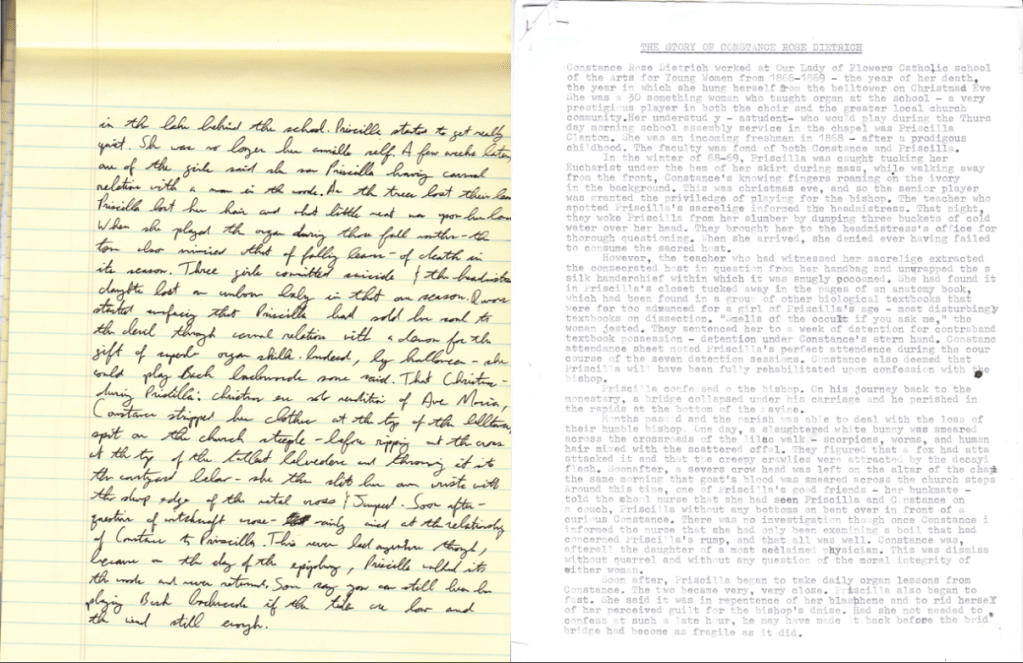 in the lake behind the school. Priscilla started to get really
quiet. She was no longer her amiable self. A few weeks later,
one of the girls said she saw Priscilla having carnal
relation with a man in the woods. As the trees lost their leaves
Priscilla lost her hair and what little meat was upon her bones
When she played the organ during those fall months - the
tone also mimiced that of falling leaves - of death in
its season. Three girls comitted suicide & the headmistress
daughter lost an unborn baby in that one season. Rumors
started surfacing that Priscilla had sold her soul to
the devil through carnal relation with a demon for the
gift of superb organ skills. Indeed, by halloween - she
could play Bach backwards some said. That Christmas -
during Priscilla's christmas eve solo rendition of Ave Maria,
Constance stripped her clothes at the top of the belltower,
spit on the church steeple - before ripping out the cross
at the top of the tallest belvedere and throwing it into
the courtyard below - she then slit her own wrists with
the sharp edge of the metal cross & Jumped. Soon after -
question of witchcraft arose - mainly aimed at the relationship
of Constance to Priscilla. This never led anywhere though,
because on the day of the epiphany, Priscilla walked into
the woods and never returned. Some say you can still hear her
playing Bach backwards if the tide is low and
the wind still enough.
THE STORY OF CONSTANCE ROSE DIETRICH
Constance Rose Dietrich worked at Our Lady of Flowers Catholic school
of the Arts for Young Women from 1866-1869 - the year of her death,
the year in which she hung herself from the belltower on Christmad Eve
She was a 30 something woman who taught organ at the school - a very
prestigious player in both the choir and the greater local church
community.Her understud y - astudent- who would play during the Thurs
day morning school assembly service in the chapel was Priscilla
Clanton. She was an incoming freshman in 1868 - after a prodigous
childhood. The faculty was fond of both Constance and Priscilla.
In the winter of 68-69, Priscilla was caught tucking her
Eucharist under the hem of her skirt during mass, while walking away
from the front, Constance's knowing fingers roaming on the ivory
in the background. This was christmas eve, and so the senior player
was granted the priviledge of playing for the bishop. The teacher who
spotted Priscilla's sacrelige informed the headmistress. That night,
they woke Priscilla from her slumber by dumping three buckets of cold
water over her head. They brought her to the headmistress's office for
thorough questioning. When she arrived, she denied ever having failed
to consume the sacred host.
However, the teacher who had witnessed her sacrelige extracted
the consecrated host in question from her handbag and unwrapped the s
silk handerchief within which it was snugly pocooned. She had found it
in Priscilla's closet tucked away in the pages of an anatomy book,
which had been found in a group of other biological textbooks that
were far too advanced for a girl of Priscilla's age - most disturbingly
textbooks on dissection. "Smells of the occult if you ask me," the
woman jested. They sentenced her to a week of detention for contraband
textbook possession - detention under Constance's stern hand. Constanc
attendance sheet noted Priscilla's perfect attendence during the cour
course of the seven detention sessions. Constance also deemed that
Priscilla will have been fully rehabilitated upon confession with the
bishop.
Priscilla confessed o the bishop. On his journey back to the
monestary, a bridge collapsed under his carriage and he perished in
the rapids at the bottom of the ravine.
Months passed and the parish was able to deal with the loss of
their humble bishop. One day, a slaughtered white bunny was smeared
across the crossroads of the lilac walk - scorpions, worms, and human
hair mixed with the scattered offal. They figured that a fox had atta
attacked it and that the creepy crawlies were attracted by the decayi
flesh. Soonafter, a severs crow head was left on the altar of the chap
the same morning that goat's blood was smeared across the church steps
Around this time, one of Priscilla's good friends - her bunkmate -
told the shool nurse that she had seen Priscilla and C nstance on
a couch, Priscilla without any bottoms on bent over in front of a
curious Constance. There was no investigation though once Constance i
informed the nurse that she had only been examining a boil that had
concerned Priscilla's rump, and that all was well. Constance was,
afterall the daughter of a most acclained physician. This was dismiss
without quarrel and without any question of the moral integrity of
either woman.
Soon after, Priscilla began to take daily organ lessons from
Constance. The two became very, very close. Priscilla also began to
fast. She said it was in repentence of her blaspheme and to rid herself
of her perceived guilt for the bishop's dmise. Had she not needed to
confess at such a late hour, he may have made it back before the brid
bridge had become as fragile as it did.